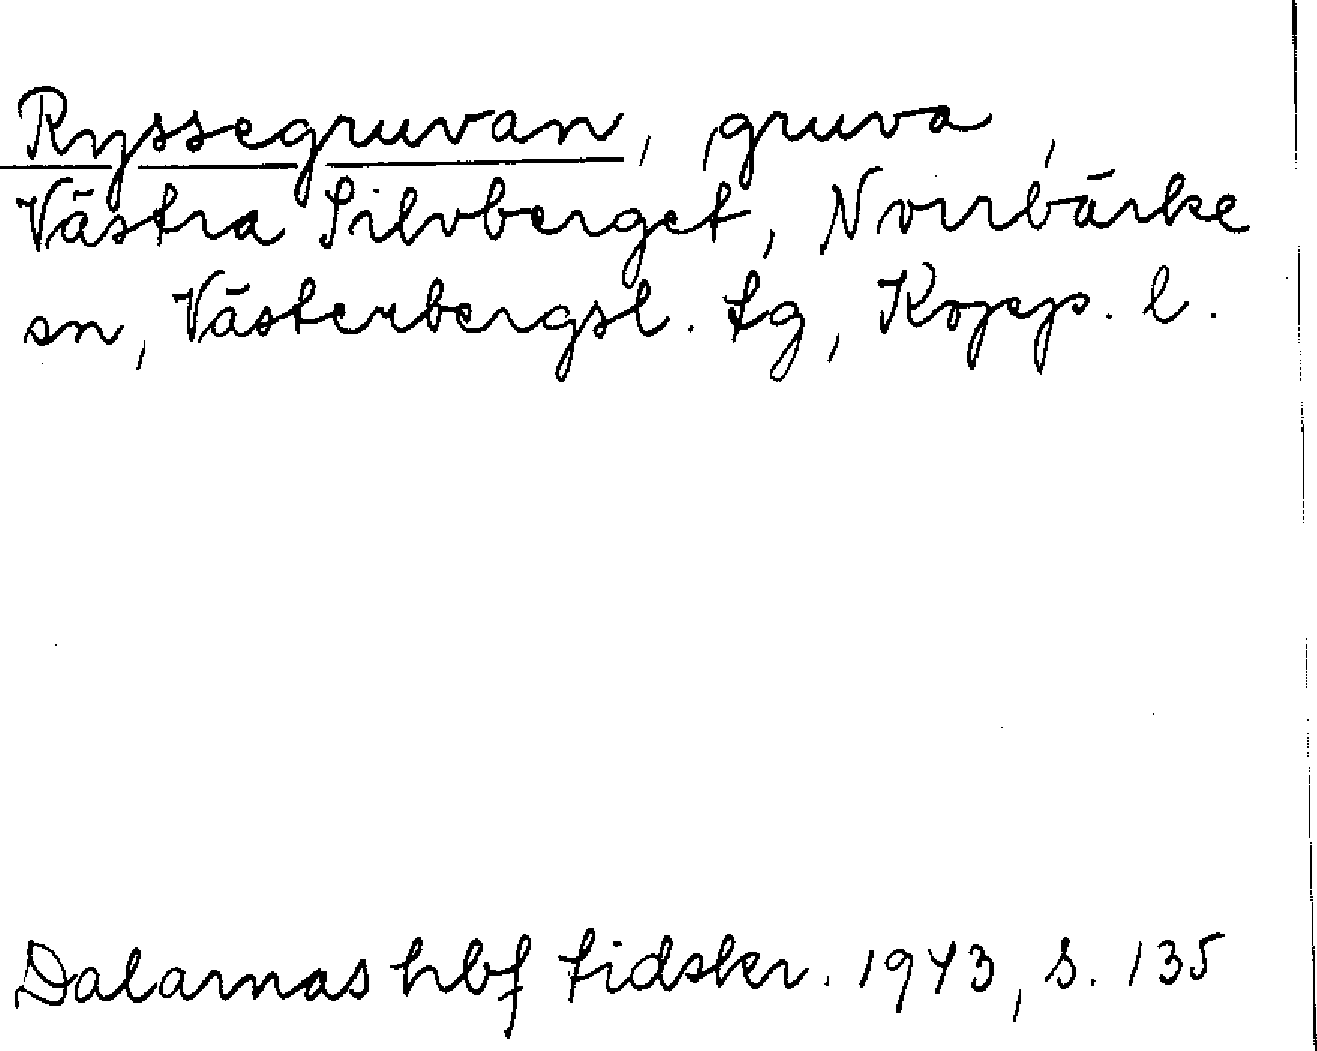 Ryssegruvan, gruva,
Västra Silvberget, Norrbärke
sn, Västerbergsl. tg, Kopp. l.
Dalarnas hbf tidskr. 1943, s. 135